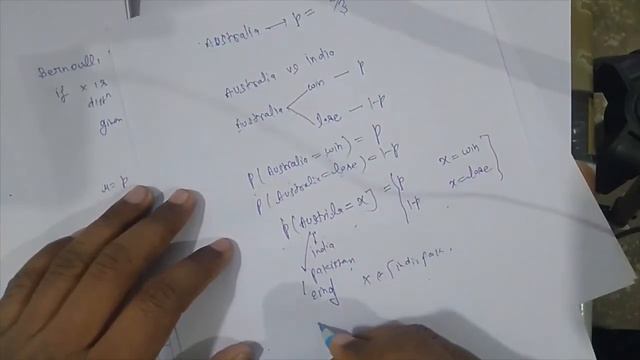 Australia → p = 
Bernoulli
if x is
distn
given
μ = p
Australia vs india
Australia
win — p
lose — 1-p
p(Australia = win) = p
p(Australia = lose) = 1-p
p(Australia = x) = { p x = win
1-p x = lose
india
pakistan
eng
x ∈